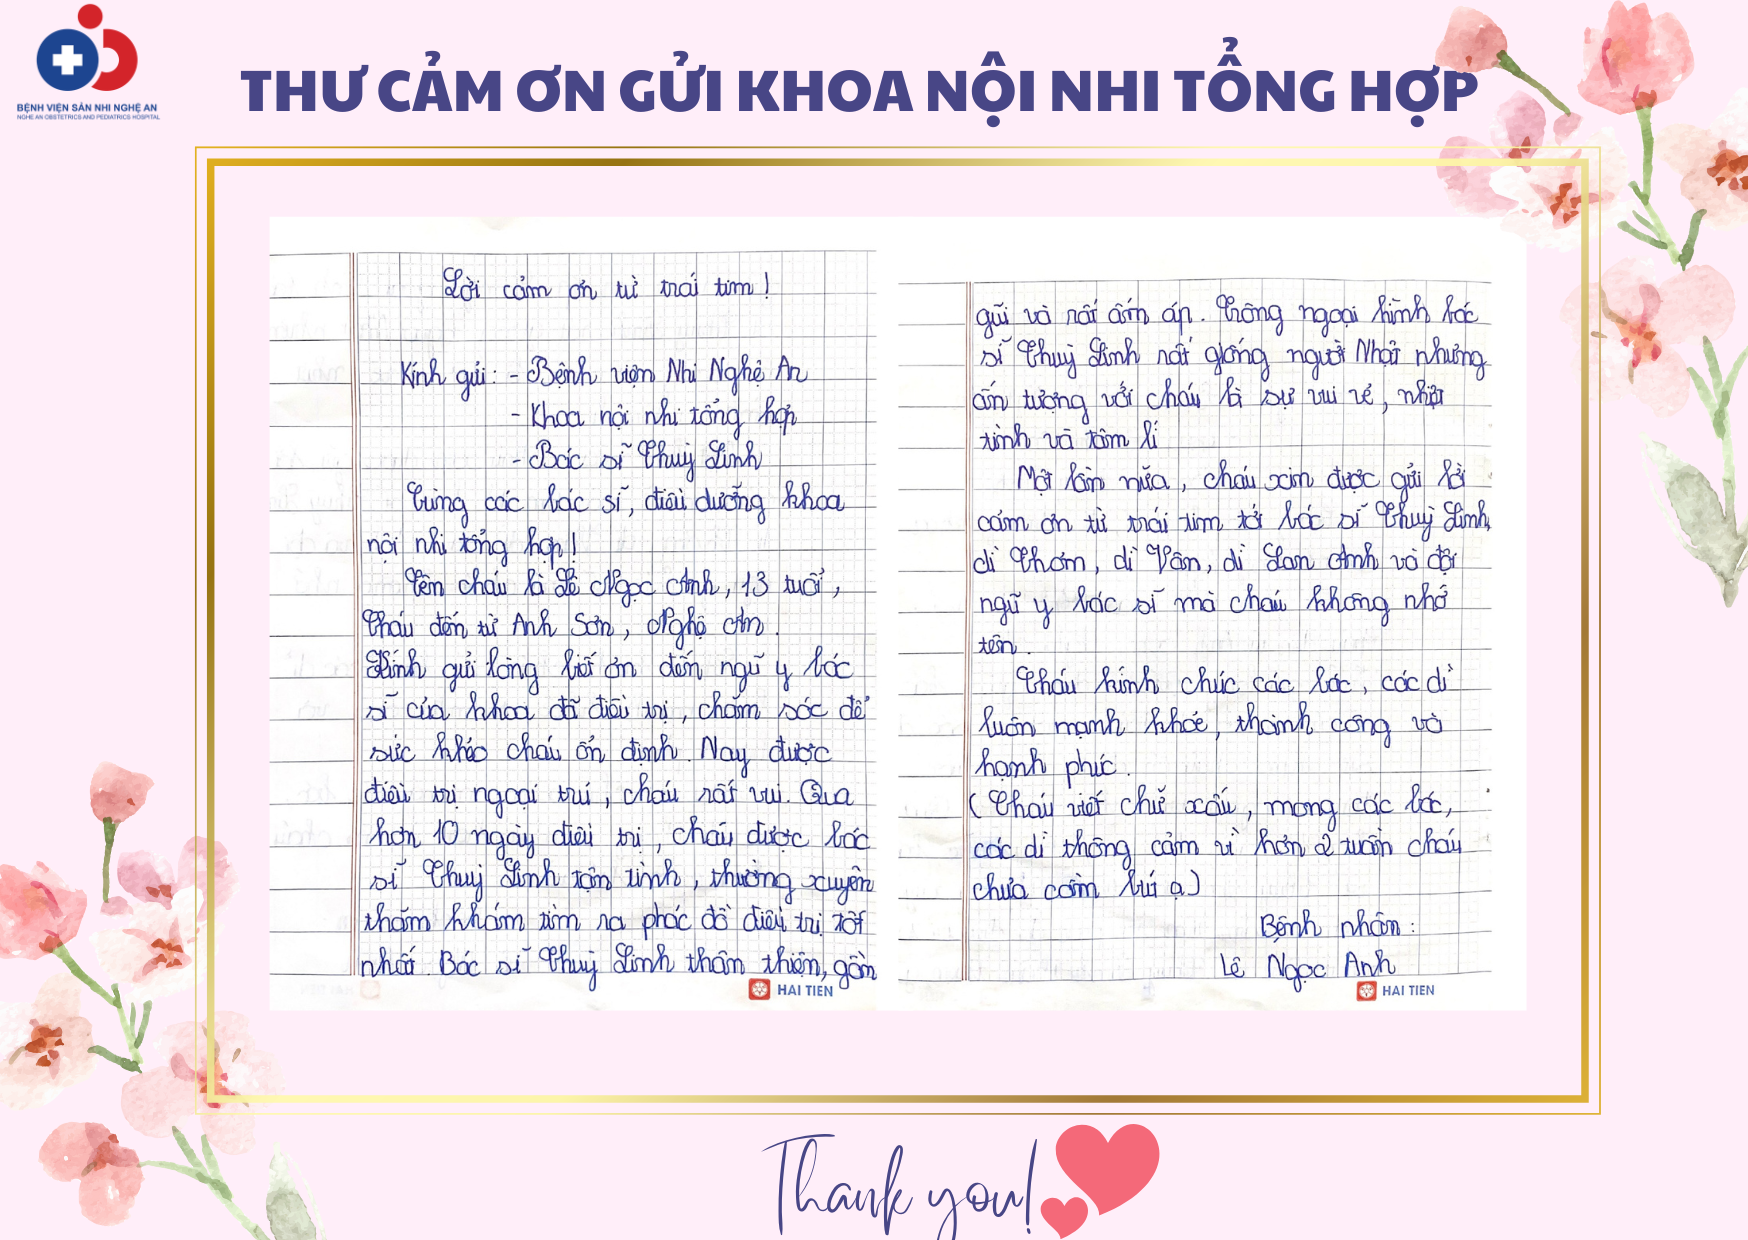 BỆNH VIỆN SẢN NHI NGHỆ AN
NGHE AN OBSTETRICS AND PEDIATRICS HOSPITAL
THƯ CẢM ƠN GỬI KHOA NỘI NHI TỔNG HỢP
Lời cảm ơn từ trái tim!
Kính gửi: - Bệnh viện Nhi Nghệ An
- Khoa nội nhi tổng hợp
- Bác sĩ Thuỳ Linh
Cùng các bác sĩ, điều dưỡng khoa
nội nhi tổng hợp!
Tên cháu là Lê Ngọc Anh, 13 tuổi,
Cháu đến từ Anh Sơn, Nghệ An.
Kính gửi lòng biết ơn đến ngũ y bác
sĩ của khoa đã điều trị, chăm sóc để
sức khẻo cháu ổn định. Nay được
điều trị ngoại trú, cháu rất vui. Qua
hơn 10 ngày điều trị, cháu được bác
sĩ Thuỳ Linh tận tình, thường xuyên
thăm khám tìm ra phác đồ điều trị tốt
nhất. Bác sĩ Thuỳ Linh thân thiện, gần
gũi và rất ấm áp. Trông ngoại hình bác
sĩ Thuỳ Linh rất giống người Nhật nhưng
ấn tượng với cháu là sự vui vẻ, nhiệt
tình và tâm lí
Một lần nữa, cháu xin được gửi lời
cảm ơn từ trái tim tới bác sĩ Thuỳ Linh,
dì Thơm, dì Vân, dì Lan Anh và đội
ngũ y bác sĩ mà cháu không nhớ
tên.
Cháu kính chúc các bác, các dì
luôn mạnh khoẻ, thành công và
hạnh phúc.
( Cháu viết chữ xấu, mong các bác,
các dì thông cảm vì hơn 2 tuần cháu
chưa cầm bút ạ)
Bệnh nhân:
Lê Ngọc Anh
HAI TIEN
HAI TIEN
Thank you!